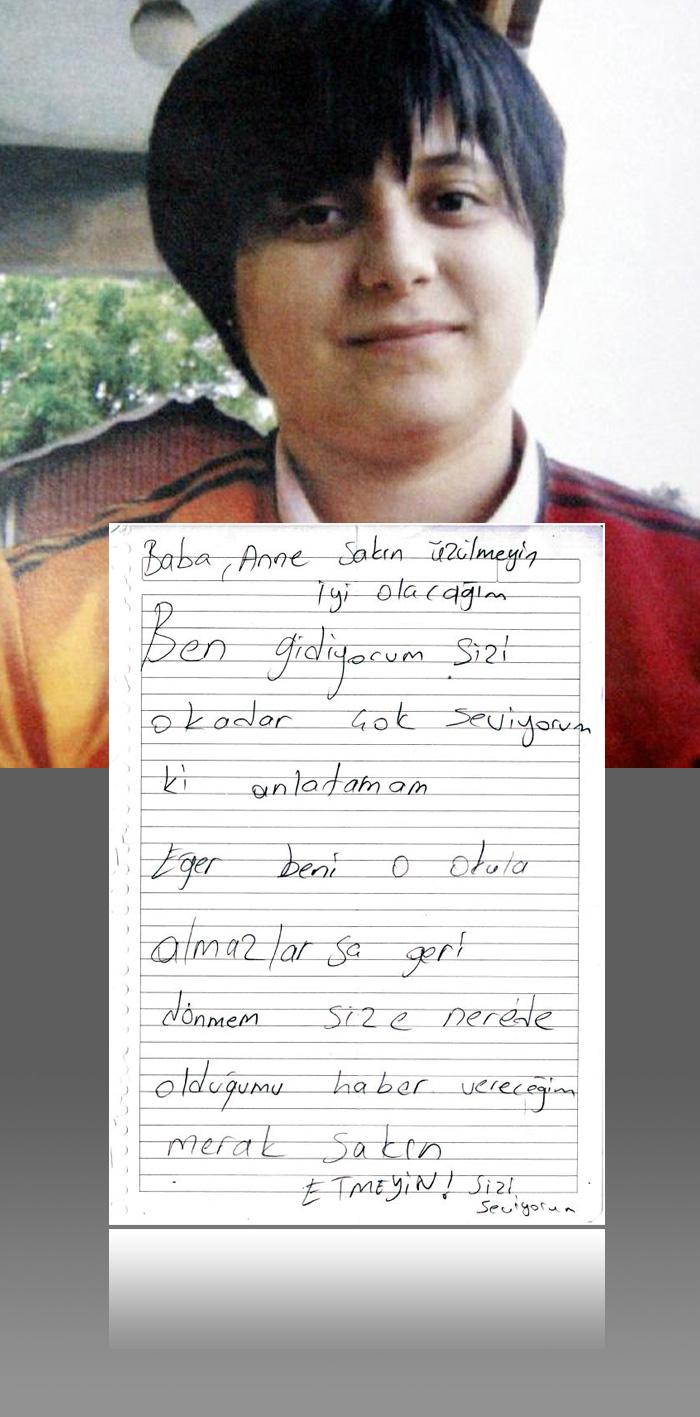 Baba, Anne Sakın üzülmeyin
iyi olacağım
Ben gidiyorum sizi
okadar çok seviyorum
ki anlatamam
Eğer beni o okula
almazlar sa geri
dönmem size nerede
olduğumu haber vereceğim
merak sakın
ETMEYİN! sizi
seviyorum